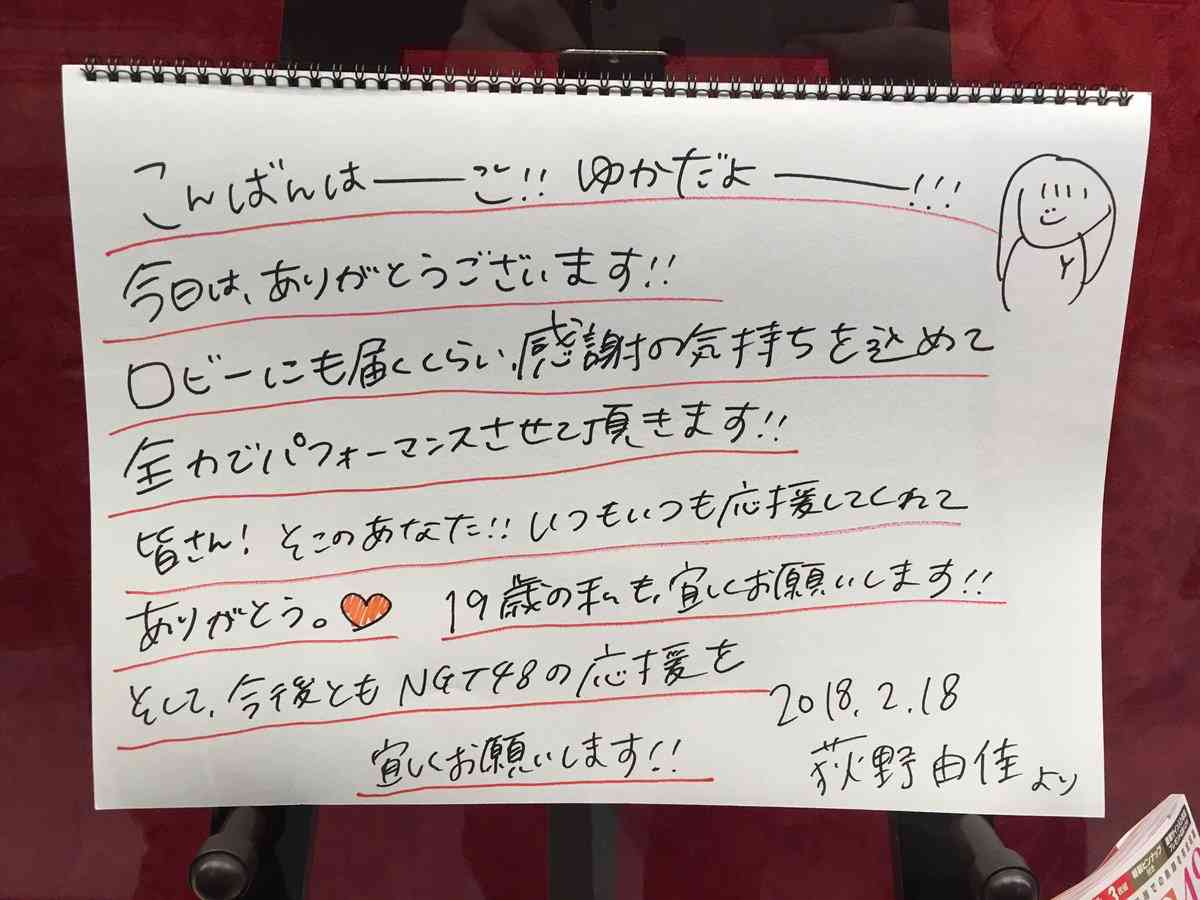 こんばんは――こ!! ゆかだよ―――!!!
今日は、ありがとうございます!!
ロビーにも届くくらい、感謝の気持ちを込めて
全力でパフォーマンスさせて頂きます!!
皆さん! そこのあなた!! いつもいつも応援してくれて
ありがとう。 19歳の私も、宜しくお願いします!!
そして、今後ともNGT48の応援を
宜しくお願いします!!
2018.2.18
荻野由佳より
3枚組